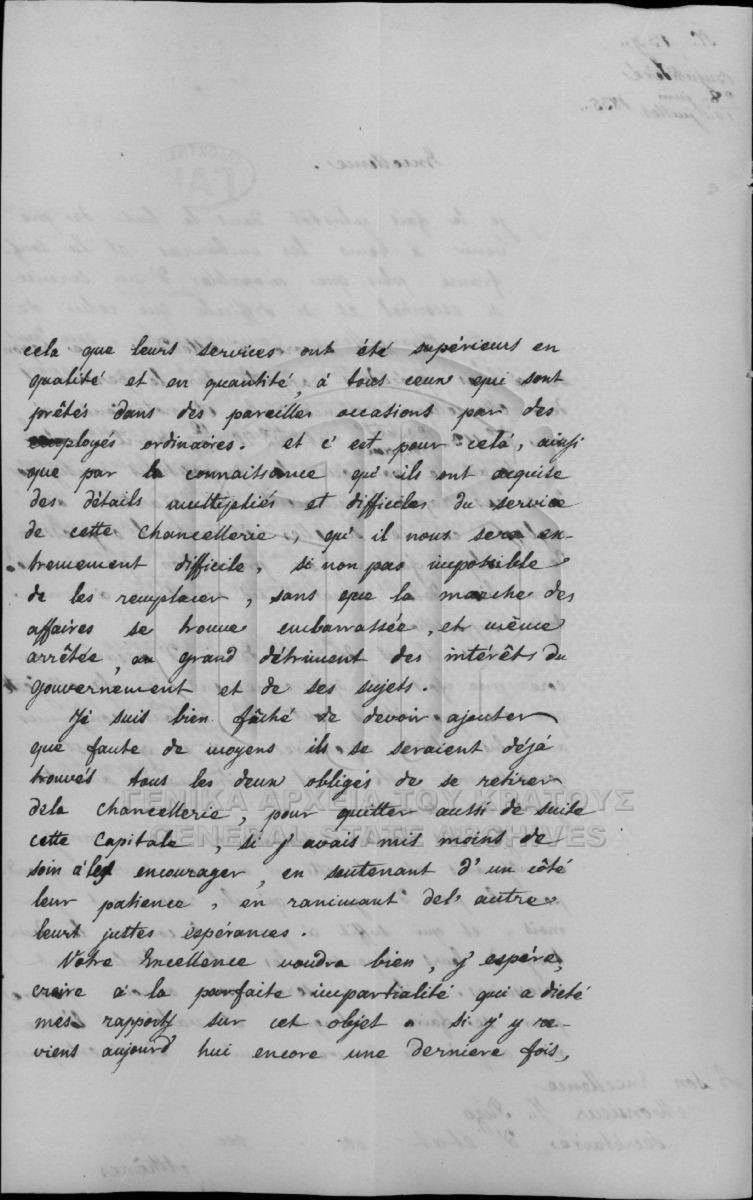 cela que leurs services ont été supérieurs en
qualité et en quantité, á tous ceux qui sont
prêtés dans des pareilles occasions par des
employés ordinaires. et c'est pour celá, ainsi
que par la connaissance qu'ils ont acquise
des détails multipliés et difficiles du service
de cette Chancellerie, qu'il nous sera ex-
tremement difficile, si non pas impossible
de les remplacer, sans que la marche des
affaires se trouve embarrassée, et même
arrêtée, au grand détriment des intérêts du
gouvernement et de ses sujets.
Je suis bien fâché de devoir ajouter
que faute de moyens ils se seraient déjá
trouvés tous les deux obligés de se retirer
dela Chancellerie, pour quitter aussi de suite
ΓΕΝΙΚΑ ΑΡΧΕΙΑ ΤΟΥ ΚΡΑΤΟΥΣ
cette Capitale, si j'avais mis moins de
GENERAL STATE ARCHIVES
soin á les encourager, en soutenant d'un côté
leur patience, en ranimant del'autre
leurs justes espérances.
Votre Excellence voudra bien, j'espére,
croire á la parfaite impartialité qui a dicté
mes rapports sur cet objet. si j'y re-
viens aujourd'hui encore une derniere fois,